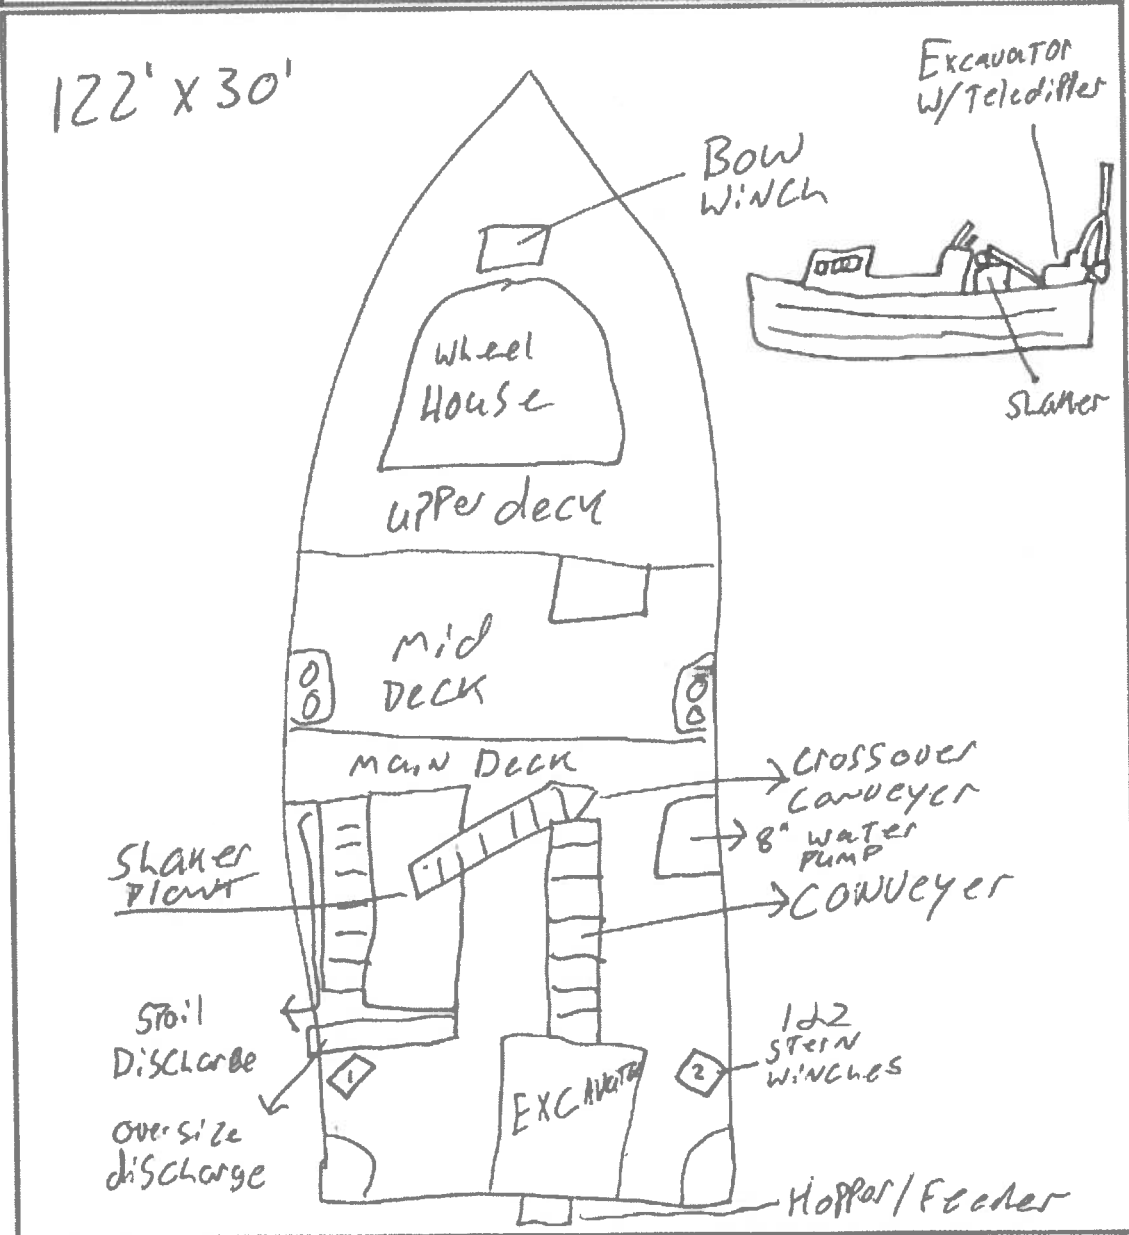 122' X 30'
Excavator
W/Teledipper
Bow
Winch
Wheel
House
Shaker
upper deck
Mid
Deck
Main Deck
Crossover
Conveyer
8" Water
Pump
Shaker
Plant
Conveyer
Spoil
Discharge
1&2
Stern
Winches
1
2
Excavator
Oversize
discharge
Hopper/Feeder